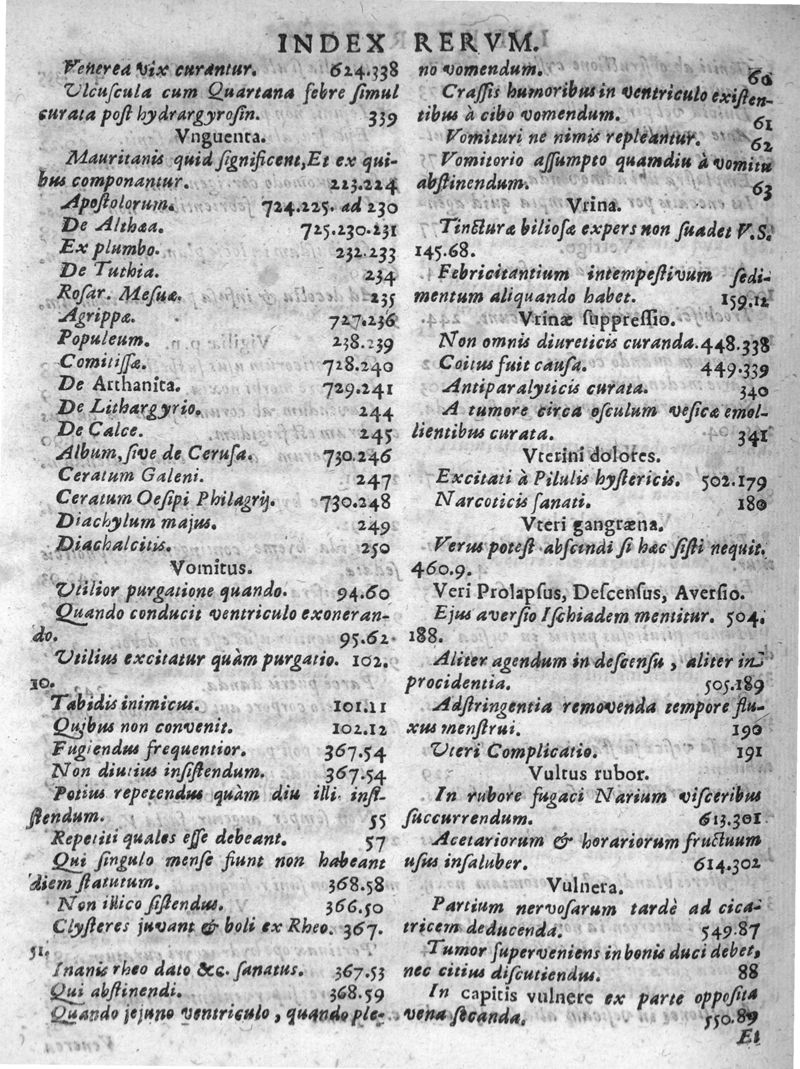 INDEX RERVM.
Venerea vix curantur. 624.338
Vlcuscula cum Quartana febre simul
curata post hydrargyrosin. 339
Vnguenta.
Mauritanis quid significent, Et ex qui-
bus componantur. 223.224
Apostolorum. 724.225. ad 230
De Althæa. 725.230.231
Ex plumbo. 232.233
De Tuthia. 234
Rosar. Mesuæ. 235
Agrippæ. 727.236
Populeum. 238.239
Comitissæ. 728.240
De Arthanita. 729.241
De Lithargyrio. 244
De Calce. 245
Album, sive de Cerusa. 730.246
Ceratum Galeni. 247
Ceratum Oesipi Philagrij. 730.248
Diachylum majus. 249
Diachalcitis. 250
Vomitus.
Utilior purgatione quando. 94.60
Quando conducit ventriculo exoneran-
do. 95.62
Utilius excitatur quàm purgatio. 102.
10.
Tabidis inimicus. 101.11
Quibus non convenit. 102.12
Fugiendus frequentior. 367.54
Non diutius insistendum. 367.54
Potius repetendus quàm diu illi insi-
stendum. 55
Repetiti quales esse debeant. 57
Qui singulo mense fiunt non habeant
diem statutum. 368.58
Non illico sistendus. 366.50
Clysteres juvant & boli ex Rheo. 367.
51.
Inanis rheo dato &c. sanatus. 367.53
Qui abstinendi. 368.59
Quando jejuno ventriculo, quando ple-
no vomendum. 60
Crassis humoribus in ventriculo existen-
tibus à cibo vomendum. 61
Vomituri ne nimis repleantur. 62
Vomitorio assumpto quamdiu à vomitu
abstinendum. 63
Vrina.
Tincturæ biliosæ expers non suadet V.S.
145.68.
Febricitantium intempestivum sedi-
mentum aliquando habet. 159.12
Vrinæ suppressio.
Non omnis diureticis curanda. 448.338
Coitus fuit causa. 449.339
Antiparalyticis curata. 340
A tumore circa osculum vesicæ emol-
lientibus curata. 341
Vterini dolores.
Excitati à Pilulis hystericis. 502.179
Narcoticis sanati. 180
Vteri gangræna.
Verus potest abscindi si hæc sisti nequit.
460.9.
Veri Prolapsus, Descensus, Aversio.
Ejus aversio Ischiadem mentitur. 504.
188.
Aliter agendum in descensu, aliter in
procidentia. 505.189
Adstringentia removenda tempore flu-
xus menstrui. 190
Uteri Complicatio. 191
Vultus rubor.
In rubore fugaci Narium visceribus
succurrendum. 613.301
Acetariorum & horariorum fructuum
usus insaluber. 614.302
Vulnera.
Partium nervosarum tardè ad cica-
tricem deducenda. 549.87
Tumor superveniens in bonis duci debet,
nec citius discutiendus. 88
In capitis vulnere ex parte opposita
vena secanda. 550.89
Et